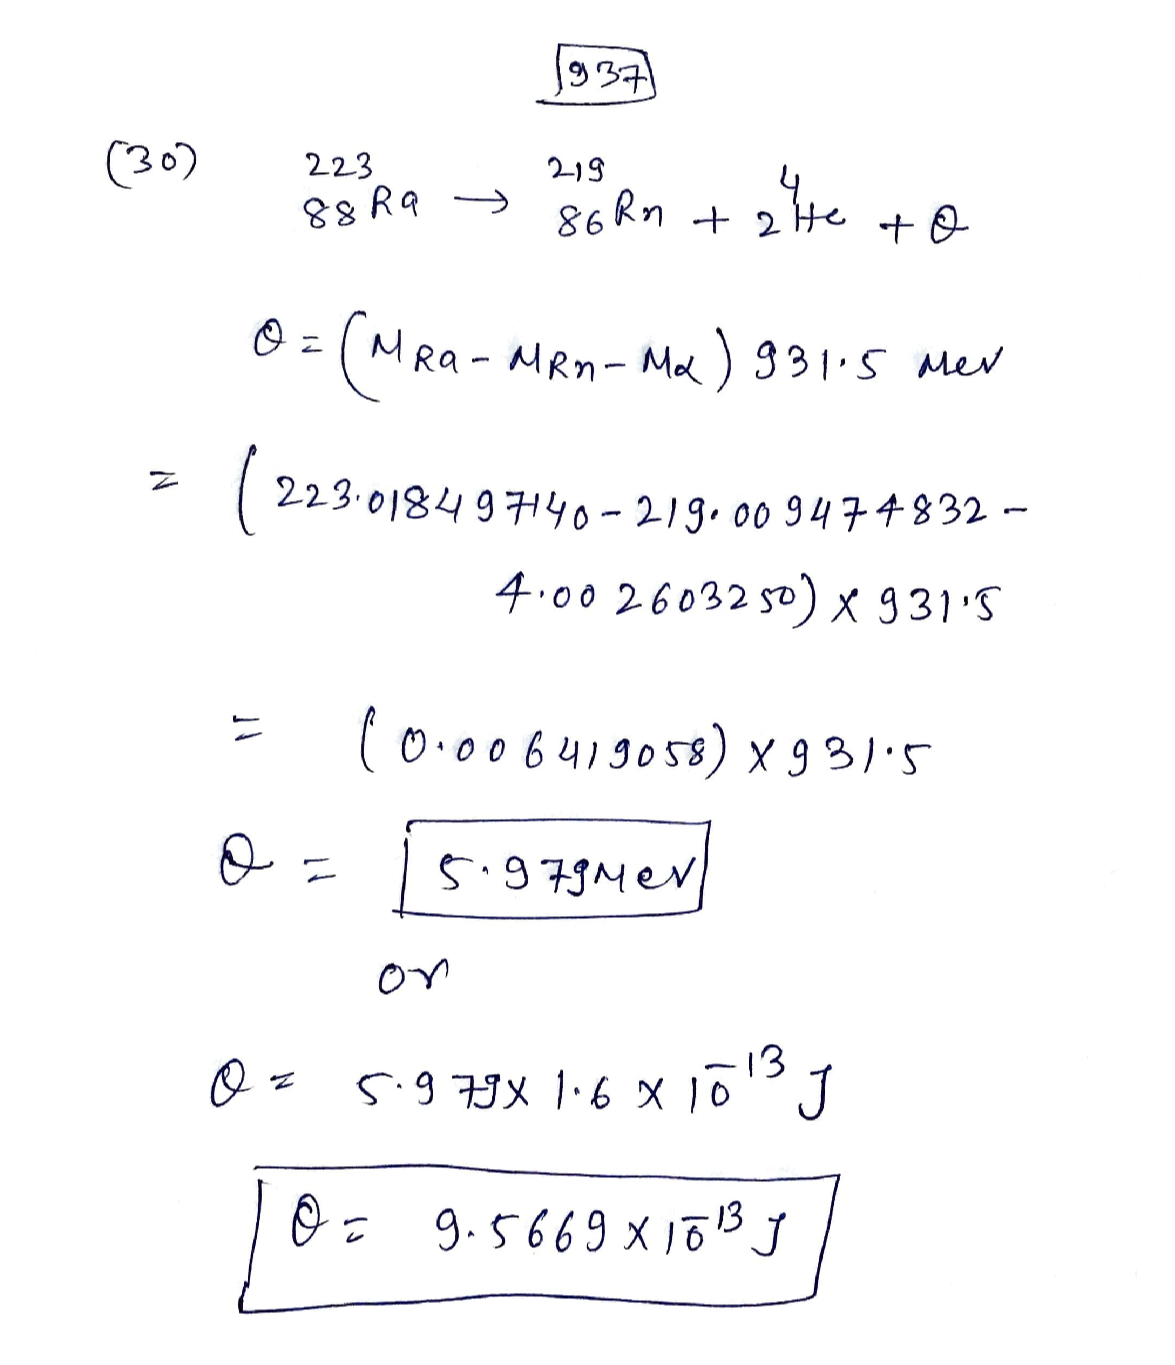 937
(30) 223 88 Ra → 219 86 Rn + 4 2 He + Q
Q = (MRa - MRn - Mα) 931.5 Mev
= (223.018497140 - 219.009474832 -
4.002603250) x 931.5
= (0.006419058) x 931.5
Q = 5.979 Mev
or
Q = 5.979 x 1.6 x 10^-13 J
Q = 9.5669 x 10^-13 J